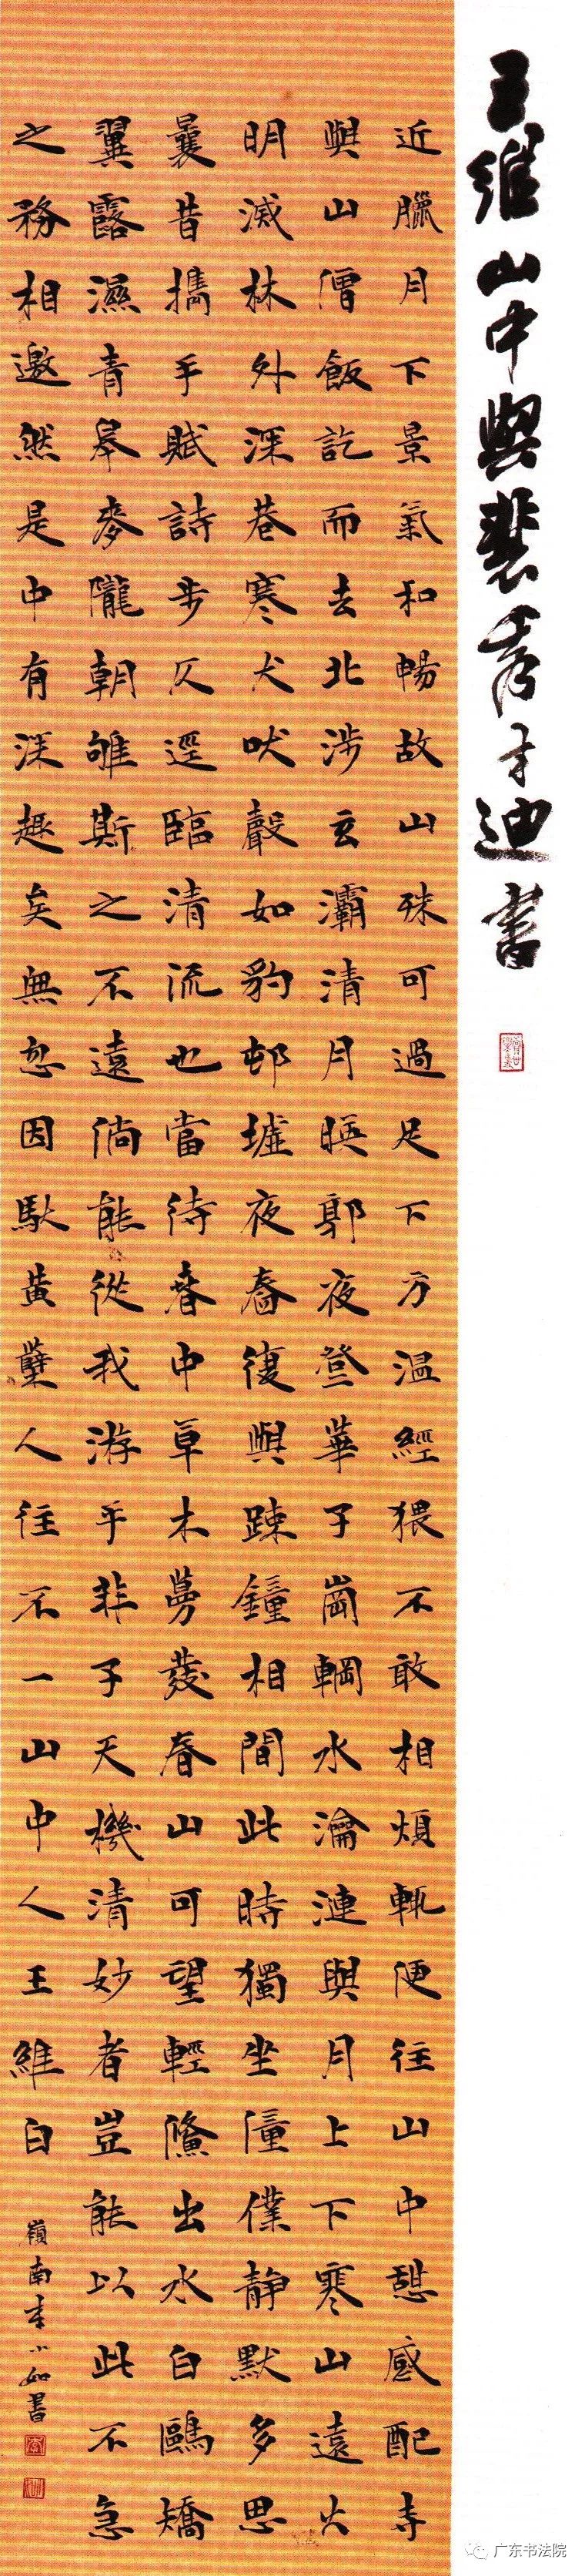 王維山中與裴秀才迪書
近臘月下景氣和暢故山殊可過足下方溫經猥不敢相煩輒便往山中憩感配寺
與山僧飯訖而去北涉玄灞清月暎郭夜登華子崗輞水淪漣與月上下寒山遠火
明滅林外深巷寒犬吠聲如豹邨墟夜舂復與踈鐘相間此時獨坐僮僕静默多思
曩昔攜手賦詩步仄逕臨清流也當待春中草木蔓發春山可望輕鯈出水白鷗矯
翼露濕青皋麥隴朝雊斯之不遠倘能從我游乎非子天機清妙者豈能以此不急
之務相邀然是中有深趣矣無忽因馱黃蘗人往不一山中人王維白
嶺南李小如書
广东书法院